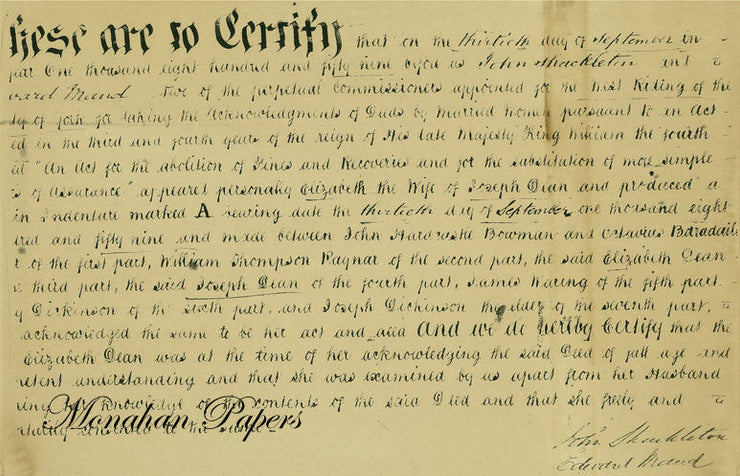 hese are to Certify that on the thirtieth day of September in
year One thousand eight hundred and fifty nine before us John Shackleton and
ward Maud two of the perpetual Commissioners appointed for the West Riding of the
ty of York for taking the Acknowledgments of Deeds by Married Women pursuant to an Act
ed in the third and fourth years of the reign of His late Majesty King William the fourth
"An Act for the abolition of Fines and Recoveries and for the substitution of more simple
s of Assurance" appeared personally Elizabeth the Wife of Joseph Dean and produced a
in Indenture marked A bearing date the thirtieth day of September one thousand eight
red and fifty nine and made between John Hardcastle Bowman and Octavius
of the first part, William Thompson Raynar of the second part, the said Elizabeth Dean
third part, the said Joseph Dean of the fourth part, James Waring of the fifth part
y Dickinson of the sixth part, and Joseph Dickinson the elder of the seventh part,
acknowledged the same to be her act and deed And we do hereby Certify that the
Elizabeth Dean was at the time of her acknowledging the said Deed of full age and
petent understanding and that she was examined by us apart from her Husband
ing her knowledge of the contents of the said Deed and that she freely and
consented to the same
Monahan Papers
John Shackleton
Edward Maud